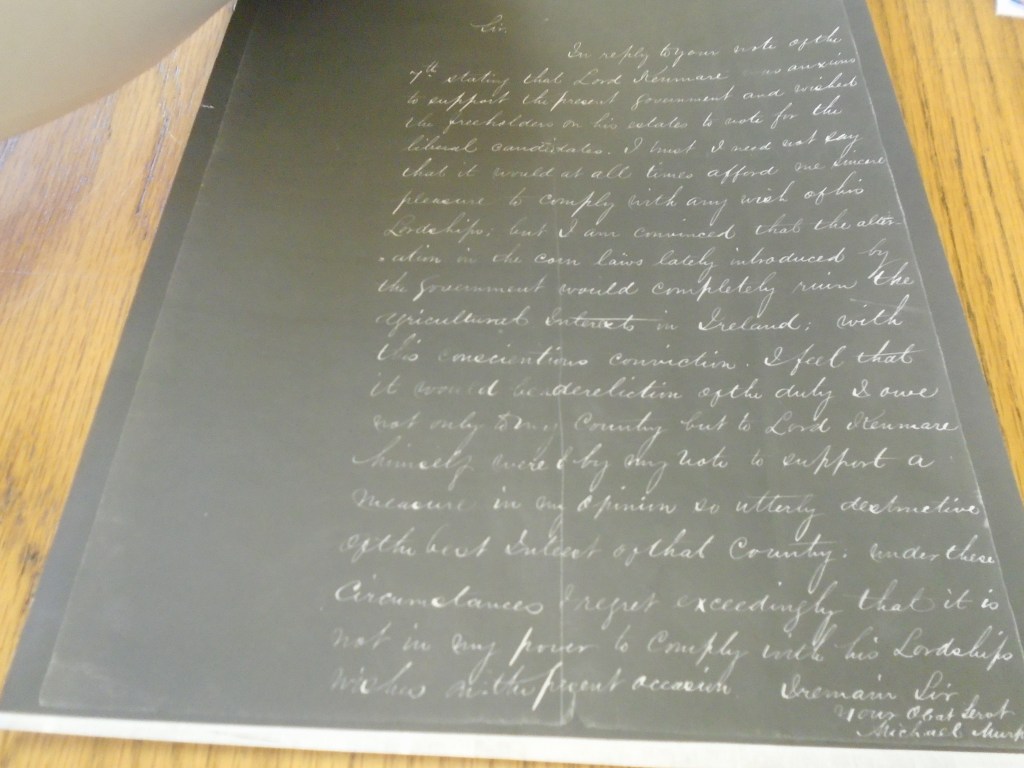 Sir
In reply to your note of the
7th stating that Lord Kenmare was anxious
to support the present government and wished
the freeholders on his estates to vote for the
liberal candidates. I trust I need not say
that it would at all times afford me sincere
pleasure to comply with any wish of his
Lordships; but I am convinced that the alter-
-ation in the corn laws lately introduced by
the Government would completely ruin the
agricultural Interest in Ireland; with
this conscientious conviction. I feel that
it would be dereliction of the duty I owe
not only to my Country but to Lord Kenmare
himself were I by my vote to support a
measure in my opinion so utterly destructive
of the best Interest of that Country. under these
Circumstances I regret exceedingly that it is
not in my power to Comply with his Lordships
wishes on the present occasion. I remain Sir
Your Obdt Servt
Michael